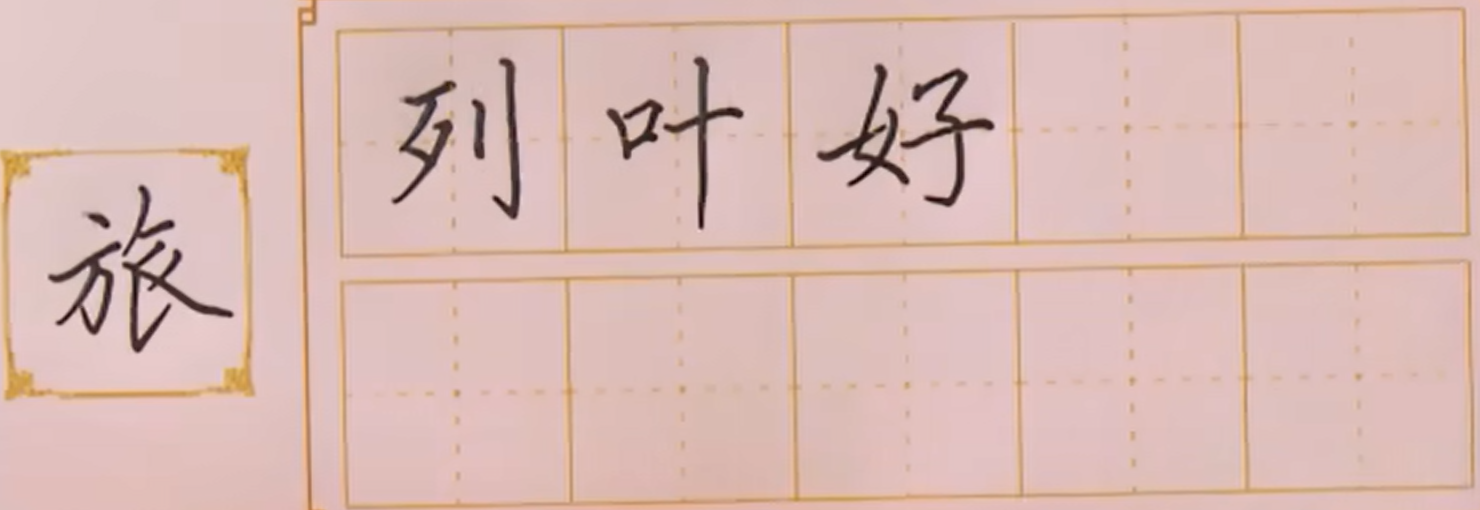 旅
列叶好